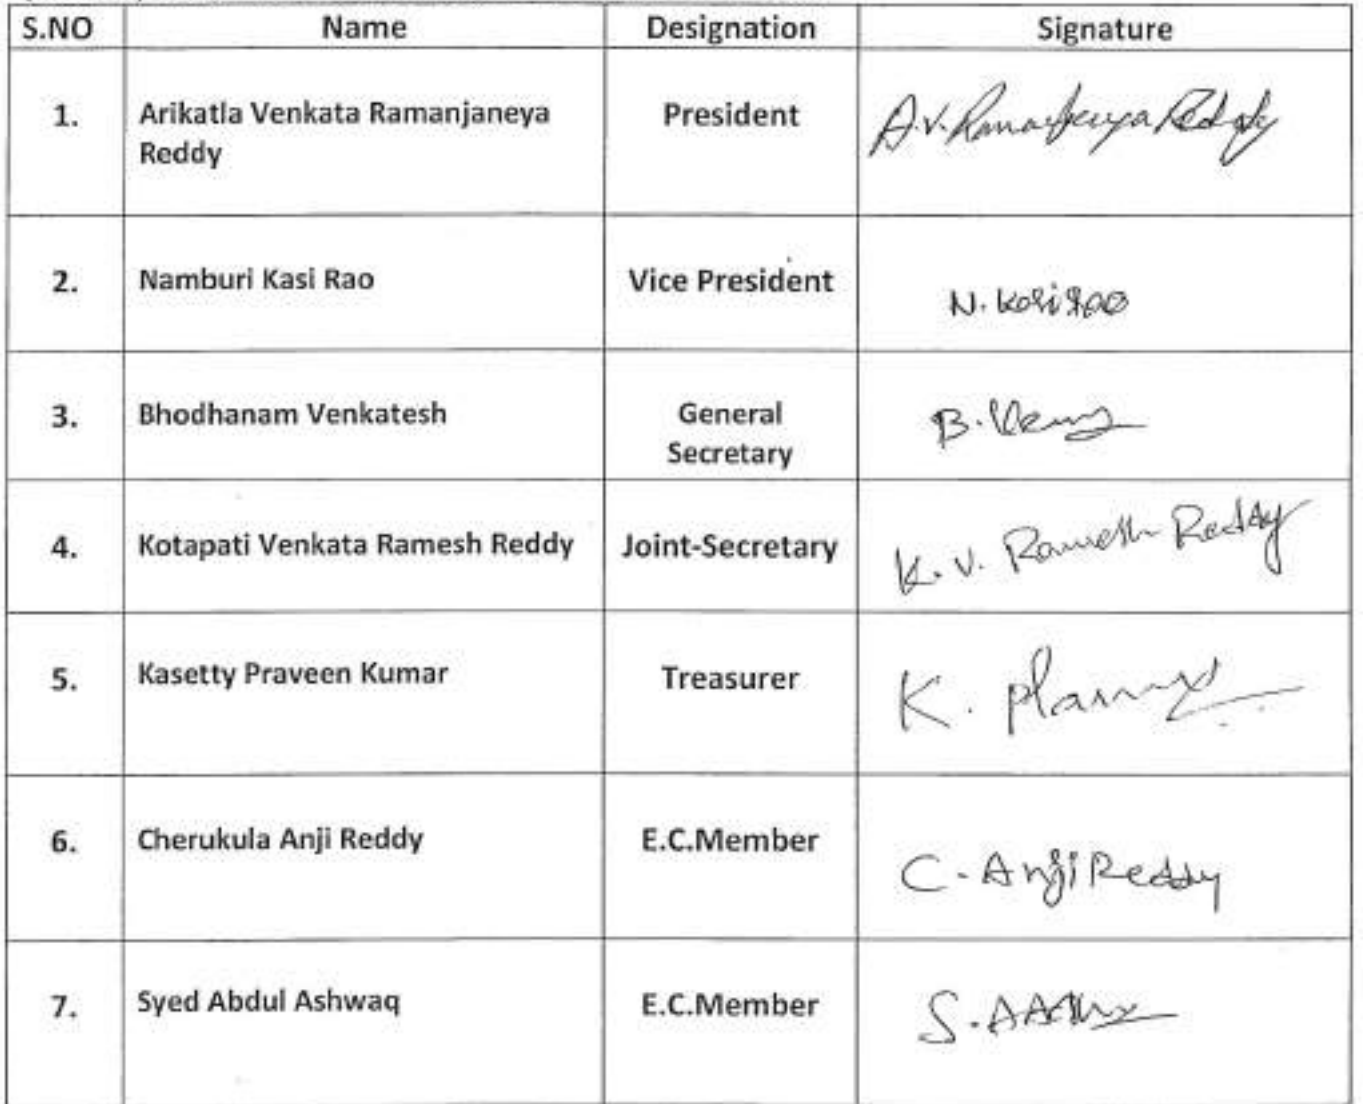 S.NO Name Designation Signature
1. Arikatla Venkata Ramanjaneya President A.V. Ramanjaneya Reddy
Reddy
2. Namburi Kasi Rao Vice President N. Kasi Rao
3. Bhodhanam Venkatesh General B.
Secretary
4. Kotapati Venkata Ramesh Reddy Joint-Secretary K. V. Ramesh Reddy
5. Kasetty Praveen Kumar Treasurer K.
6. Cherukula Anji Reddy E.C.Member C. Anji Reddy
7. Syed Abdul Ashwaq E.C.Member S.